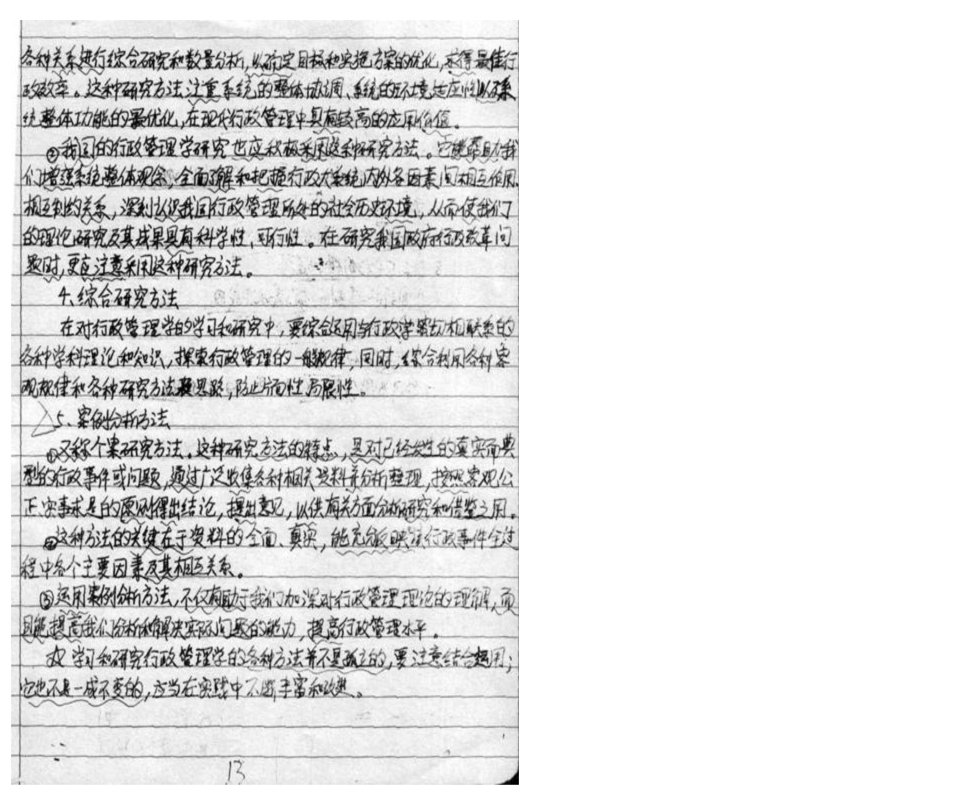 各种关系进行综合研究和数量分析,以确定目标和实施方案的优化,求得最佳行
政效率。这种研究方法注重系统的整体协调、系统的环境适应性以及系
统整体功能的最优化,在现代行政管理中具有较高的应用价值。
②我国的行政管理学研究也应积极采用这种研究方法。它能帮助我
们增强系统整体观念,全面了解和把握行政大系统内外各因素间相互作用、
相互制约关系,深刻认识我国行政管理所处的社会历史环境,从而使我们
的理论研究及其成果具有科学性、可行性。在研究我国政府行政改革问
题时,更应注意采用这种研究方法。
4、综合研究方法
在对行政管理学的学习和研究中,要综合运用与行政学密切相联系的
各种学科理论和知识,探索行政管理的一般规律,同时,综合利用各种客
观规律和各种研究方法及思路,防止片面性局限性。
5、案例分析方法
①又称个案研究方法。这种研究方法的特点,是对已经发生的真实而典
型的行政事件或问题,通过广泛收集各种相关资料并分析整理,按照客观公
正、实事求是的原则得出结论,提出意见,以供有关方面分析研究和借鉴之用。
②这种方法的关键在于资料的全面、真实,能充分反映该行政事件全过
程中各个主要因素及其相互关系。
③运用案例分析方法,不仅有助于我们加深对行政管理理论的理解,而
且能提高我们分析和解决实际问题的能力,提高行政管理水平。
故 学习和研究行政管理学的各种方法并不是孤立的,要注意结合起用;
它也不是一成不变的,应当在实践中不断丰富和改进。
13